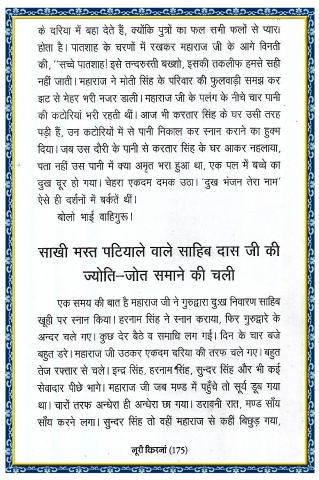 के दरिया में बहा देते हैं, क्योंकि पुत्रों का फल सभी फलों से प्यारा
होता है। पातशाह के चरणों में रखकर महाराज जी के आगे विनती
की, ''सच्चे पातशाह! इसे तन्दरुस्ती बख्शो, इसकी तकलीफ हमसे सही
नहीं जाती। महाराज ने मोती सिंह के परिवार की फुलवाड़ी समझ कर
झट से मेहर भरी नजर डाली। महाराज जी के पलंग के नीचे चार पानी
की कटोरियां भरी रहती थीं। आज भी करतार सिंह के घर उसी तरह
पड़ी हैं, उन कटोरियों में से पानी निकाल कर स्नान कराने का हुक्म
दिया। जब उस दौरी के पानी से करतार सिंह के घर आकर नहलाया,
पता नहीं उस पानी में क्या अमृत भरा हुआ था, एक पल में बच्चे का
दुख दूर हो गया। चेहरा एकदम दमक उठा। 'दुख भंजन तेरा नाम'
ऐसे ही दर्शनों में बर्कतें थीं।
बोलो भाई वाहिगुरू।
साखी मस्त पटियाले वाले साहिब दास जी की
ज्योति–जोत समाने की चली
एक समय की बात है महाराज जी ने गुरुद्वारा दुःख निवारण साहिब
खूही पर स्नान किया। हरनाम सिंह ने स्नान कराया, फिर गुरुद्वारे के
अन्दर चले गए। कुछ देर बैठे व समाधि लग गई। दिन के चार बजे
बहुत डरे। महाराज जी उठकर एकदम दरिया की तरफ चले गए। बहुत
तेज रफ्तार से चले। इन्द्र सिंह, हरनाम सिंह, सुन्दर सिंह और भी कई
सेवादार पीछे भागे। महाराज जी जब मण्ड में पहुँचे तो सूर्य डूब गया
था। चारों तरफ अन्धेरा ही अन्धेरा छा गया। डरावनी रात, मण्ड साँय
साँय करने लगा। सुन्दर सिंह तो वहीं महाराज से कहीं बिछुड़ गया,
नूरी किरनां (175)